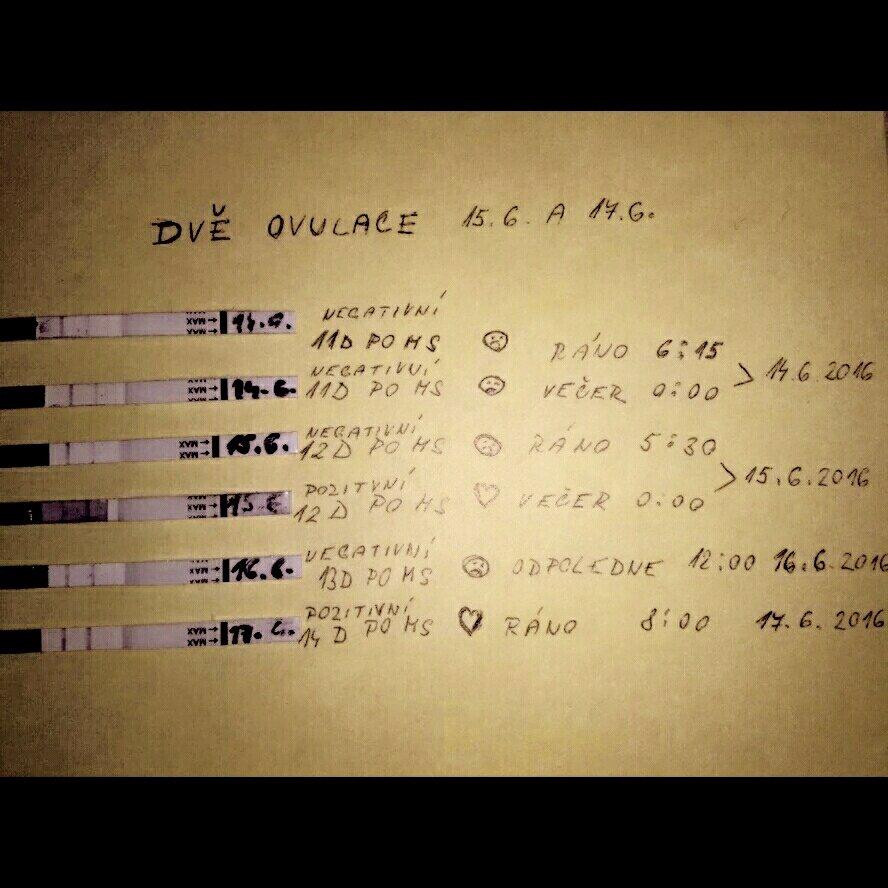 DVĚ OVULACE 15.6. A 17.6.
NEGATIVNÍ
← MAX 14.6. 11D PO MS RÁNO 6:15
NEGATIVNÍ
← MAX 14.6. 11D PO MS VEČER 0:00 > 14.6.2016
NEGATIVNÍ
← MAX 15.6. 12D PO MS RÁNO 5:30
POZITVNÍ
← MAX 15.6 12 D PO MS VEČER 0:00 > 15.6.2016
NEGATIVNÍ
← MAX 16.6. 13D PO MS ODPOLEDNE 12:00 16.6.2016
POZITIVNÍ
← MAX 17.6. 14 D PO MS RÁNO 8:00 17.6.2016